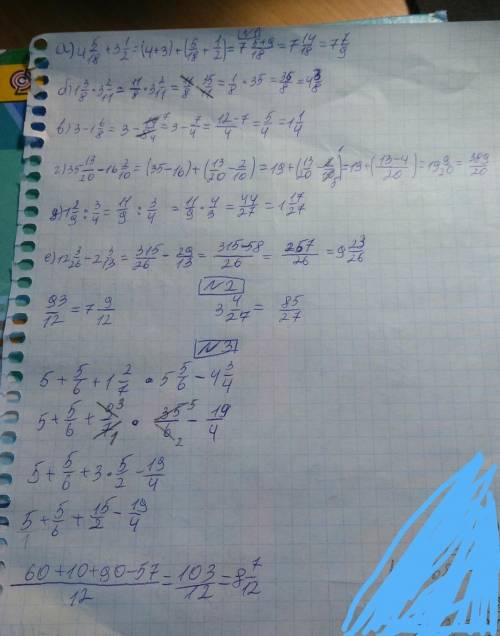 №1
а) 4 5/18 + 3 1/2 = (4+3) + (5/18 + 1/2) = 7 5+9/18 = 7 14/18 = 7 7/9
б) 1 3/8 · 3 2/11 = 11/8 · 3 2/11 = 11/8 · 35/11 = 1/8 · 35 = 35/8 = 4 3/8
в) 3 - 1 6/8 = 3 - 14/8 = 3 - 7/4 = 12-7/4 = 5/4 = 1 1/4
г) 35 13/20 - 16 2/10 = (35-16) + (13/20 - 2/10) = 19 + (13/20 - 2/10) = 19 + (13-4/20) = 19 9/20 = 389/20
д) 1 2/9 : 3/4 = 11/9 : 3/4 = 11/9 · 4/3 = 44/27 = 1 17/27
е) 12 3/26 - 2 3/13 = 315/26 - 29/13 = 315-58/26 = 257/26 = 9 23/26
№2
93/12 = 7 9/12 3 4/27 = 85/27
№3
5 + 5/6 + 1 2/7 · 5 5/6 - 4 3/4
5 + 5/6 + 9/7 · 35/6 - 19/4
5 + 5/6 + 3 · 5/2 - 19/4
5/1 + 5/6 + 15/2 - 19/4
60+10+90-57/12 = 103/12 = 8 7/12